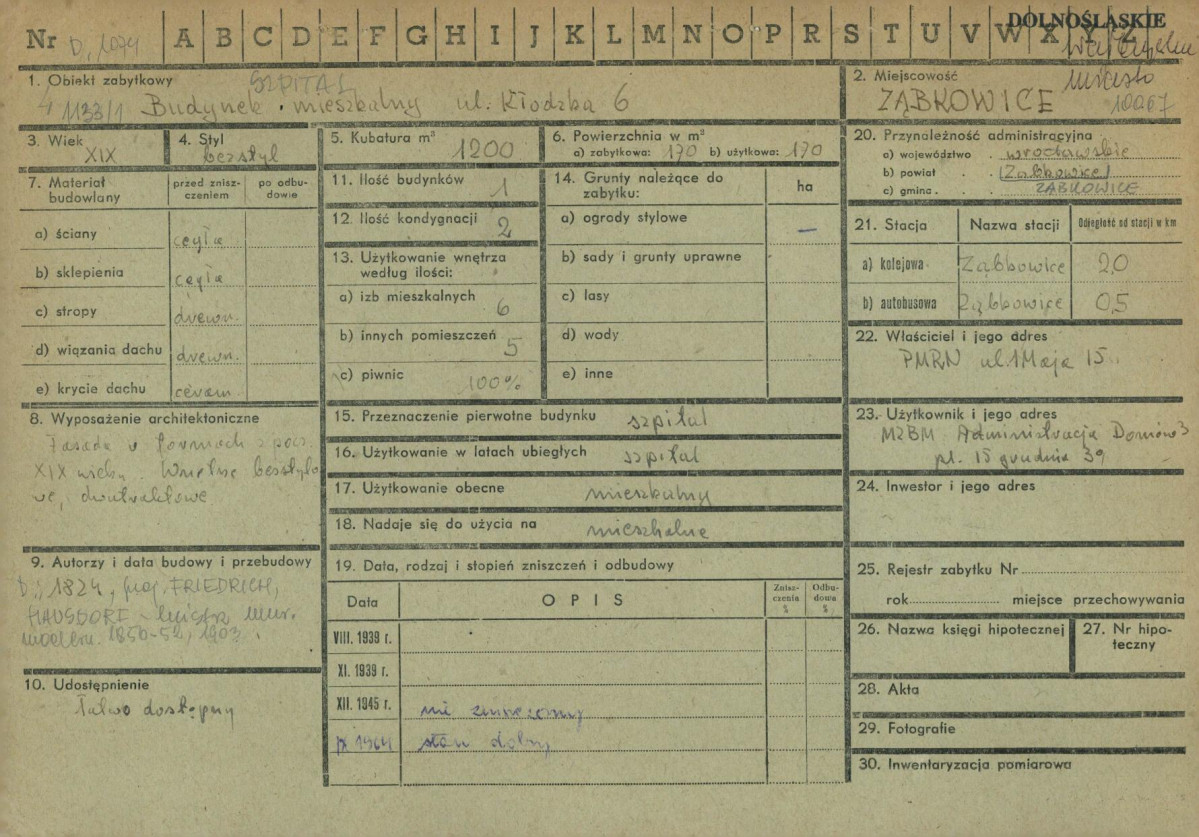 Nr D, 1074 A B C D E F G H I J K L M N O P R S T U V W X Y Z
DOLNOŚLĄSKIE
1. Obiekt zabytkowy SZPITAL
1133/1 Budynek mieszkalny ul. Kłodzka 6
2. Miejscowość miasto
ZĄBKOWICE 10067
3. Wiek XIX
4. Styl bezstyl
5. Kubatura m³ 1200
6. Powierzchnia w m²
a) zabytkowa: 170 b) użytkowa: 170
20. Przynależność administracyjna
a) województwo wrocławskie
b) powiat Ząbkowice
c) gmina ZĄBKOWICE
7. Materiał budowlany
przed zniszczeniem
po odbudowie
a) ściany cegła
b) sklepienia cegła
c) stropy drewn.
d) wiązania dachu drewn.
e) krycie dachu ceram.
11. Ilość budynków 1
12. Ilość kondygnacji 2
13. Użytkowanie wnętrza
według ilości:
a) izb mieszkalnych 6
b) innych pomieszczeń 5
c) piwnic 100%
14. Grunty należące do
zabytku:
ha
a) ogrody stylowe –
b) sady i grunty uprawne
c) lasy
d) wody
e) inne
21. Stacja Nazwa stacji Odległość od stacji w km
a) kolejowa Ząbkowice 2,0
b) autobusowa Ząbkowice 0,5
22. Właściciel i jego adres
PMRN ul. 1 Maja 15.
8. Wyposażenie architektoniczne
Fasada o formach z pocz.
XIX wieku. Wnętrze bezstylo
we, dwutraktowe
15. Przeznaczenie pierwotne budynku szpital
16. Użytkowanie w latach ubiegłych szpital
17. Użytkowanie obecne mieszkalny
18. Nadaje się do użycia na mieszkalne
23. Użytkownik i jego adres
MZBM Administracja Domów 3
pl. 15 grudnia 39
24. Inwestor i jego adres
9. Autorzy i data budowy i przebudowy
D.; 1824, proj. FRIEDRICH,
HAUSDORF - mistrz mur.
1850-52, 1903.
10. Udostępnienie
Łatwo dostępny
19. Data, rodzaj i stopień zniszczeń i odbudowy
Data OPIS Zniszczenia % Odbudowa %
VIII. 1939 r.
XI. 1939 r.
XII. 1945 r. nie zniszczony
IX 1964 stan dobry
25. Rejestr zabytku Nr
rok miejsce przechowywania
26. Nazwa księgi hipotecznej
27. Nr hipoteczny
28. Akta
29. Fotografie
30. Inwentaryzacja pomiarowa